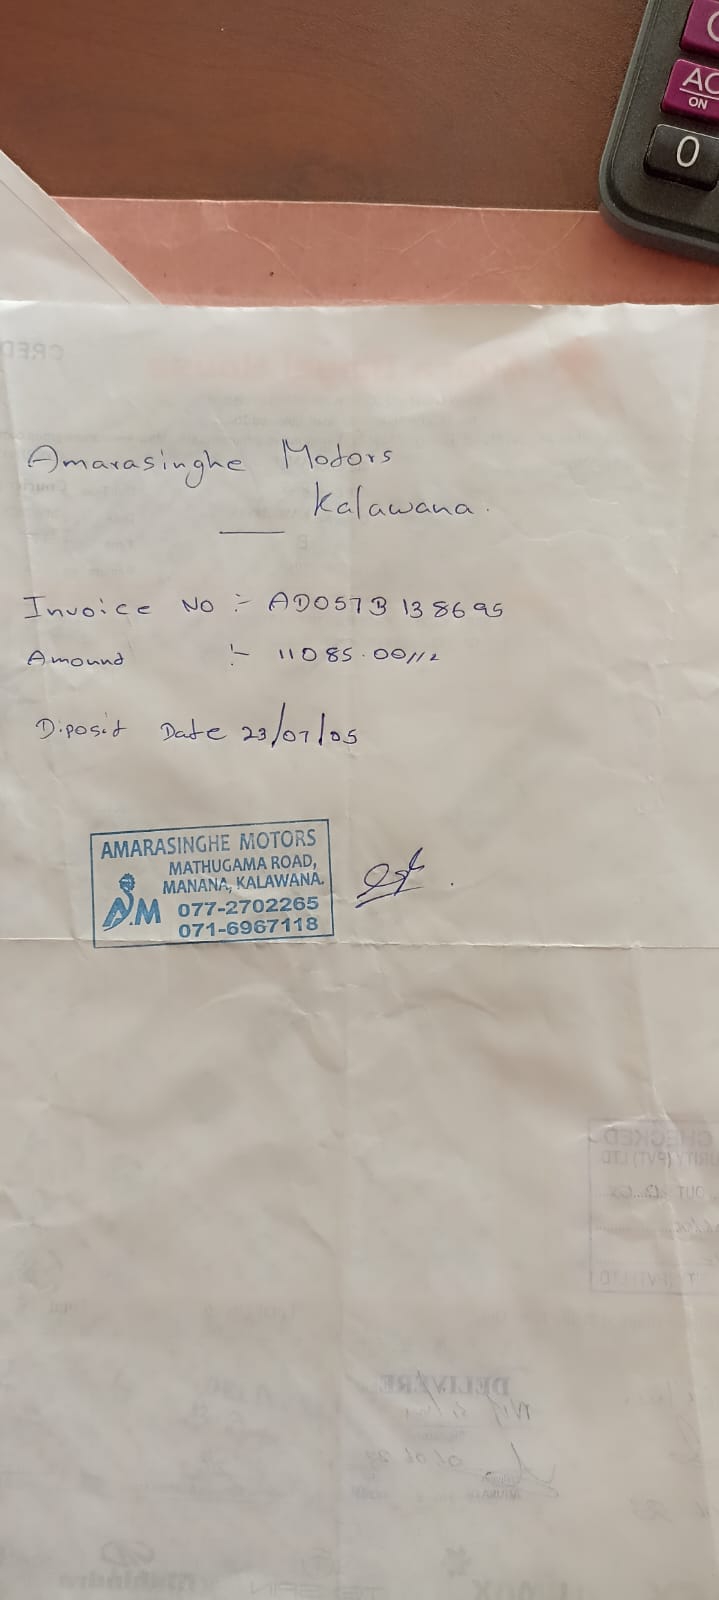 AC
ON
0
Amarasinghe Motors
Kalawana.
Invoice No :- AD057B138695
Amound :- 11085.00//2
Diposit Date 23/07/05
AMARASINGHE MOTORS
MATHUGAMA ROAD,
MANANA, KALAWANA.
A.M 077-2702265
071-6967118
CHECKED
DELIVERE